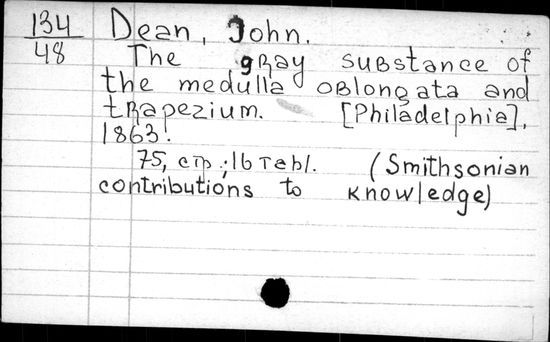 134 Dean, John.
48 The gray substance of
the medulla oblongata and
trapezium. [Philadelphia],
1863.
75, стр.; 16 табл. (Smithsonian
contributions to knowledge)